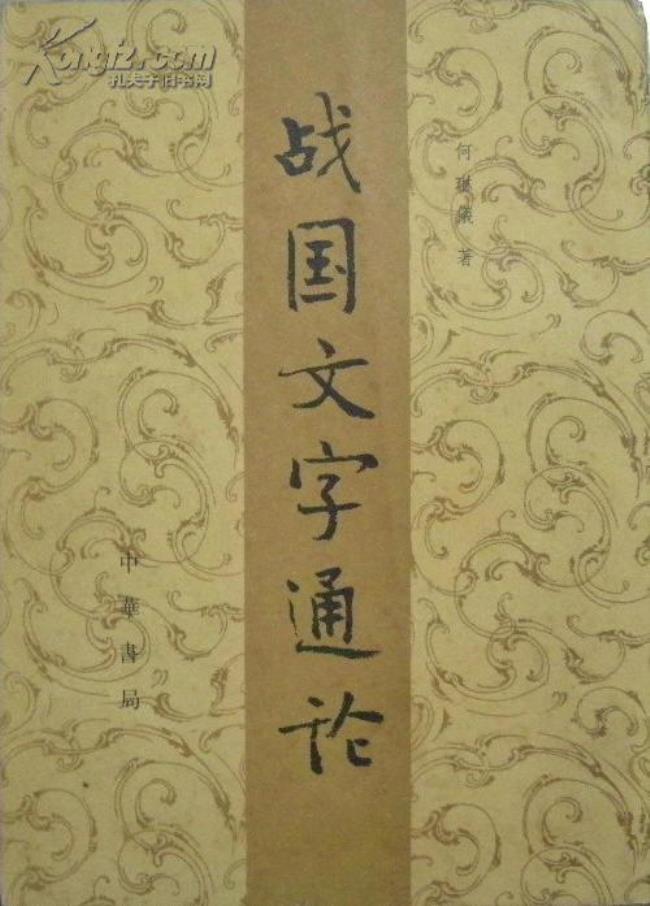 Kongfz.com
孔夫子旧书网
何琳儀 著
战国文字通论
中華書局